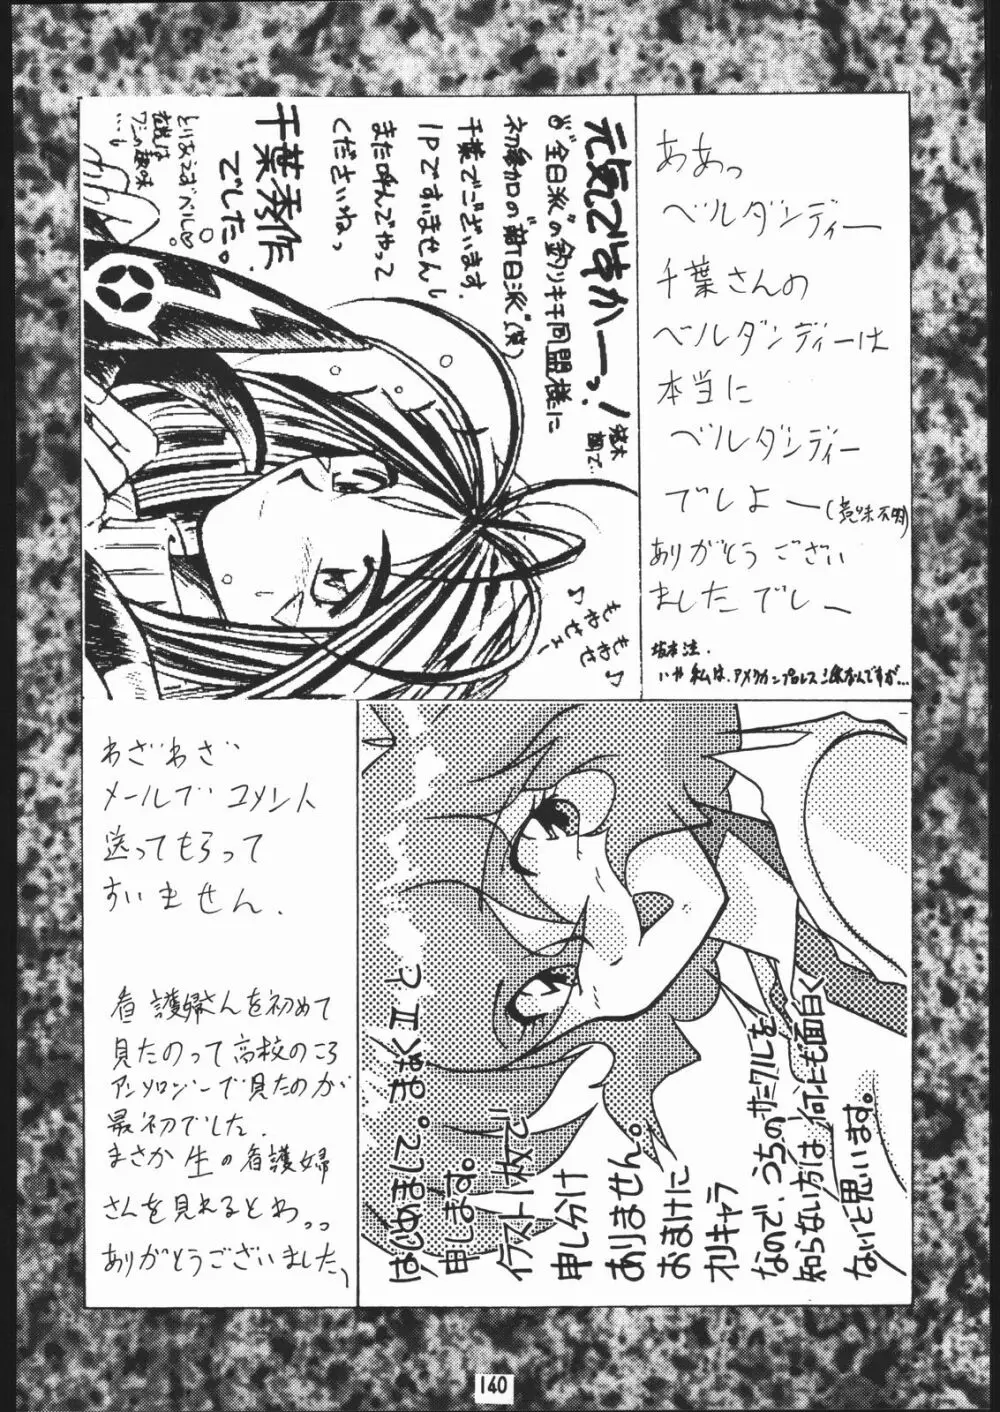 元気ですかーっ!
"全日派"の釣りキチ同盟様に
初参加の"新日派"(笑)
千葉でございます。
1Pですいませんし
また呼んでやって
くださいねっ
千葉秀作
でした。
とりあえずベル
もわせェ〜♪
もわせ♪
ああっ
ベルダンディー
千葉さんの
ベルダンディーは
本当に
ベルダンディー
でしよー(意味不明)
ありがとうござい
ましたでしー
いや私は、アメリカンプロレス派なんですが…
わざわざ
メールでコメント
送ってもらって
すいません.
看護婦さんを初めて
見たのって高校のころ
アンソロジーで見たのが
最初でした.
まさか生の看護婦
さんを見れるとわ。。
ありがとうございました、
はじめまして。まなくIIと
申します。
イラスト1枚で
申し分け
ありません。
おまけに
オリキャラ
なので、うちのサークルを
知らない方は何にも面白く
ないと思います。
140